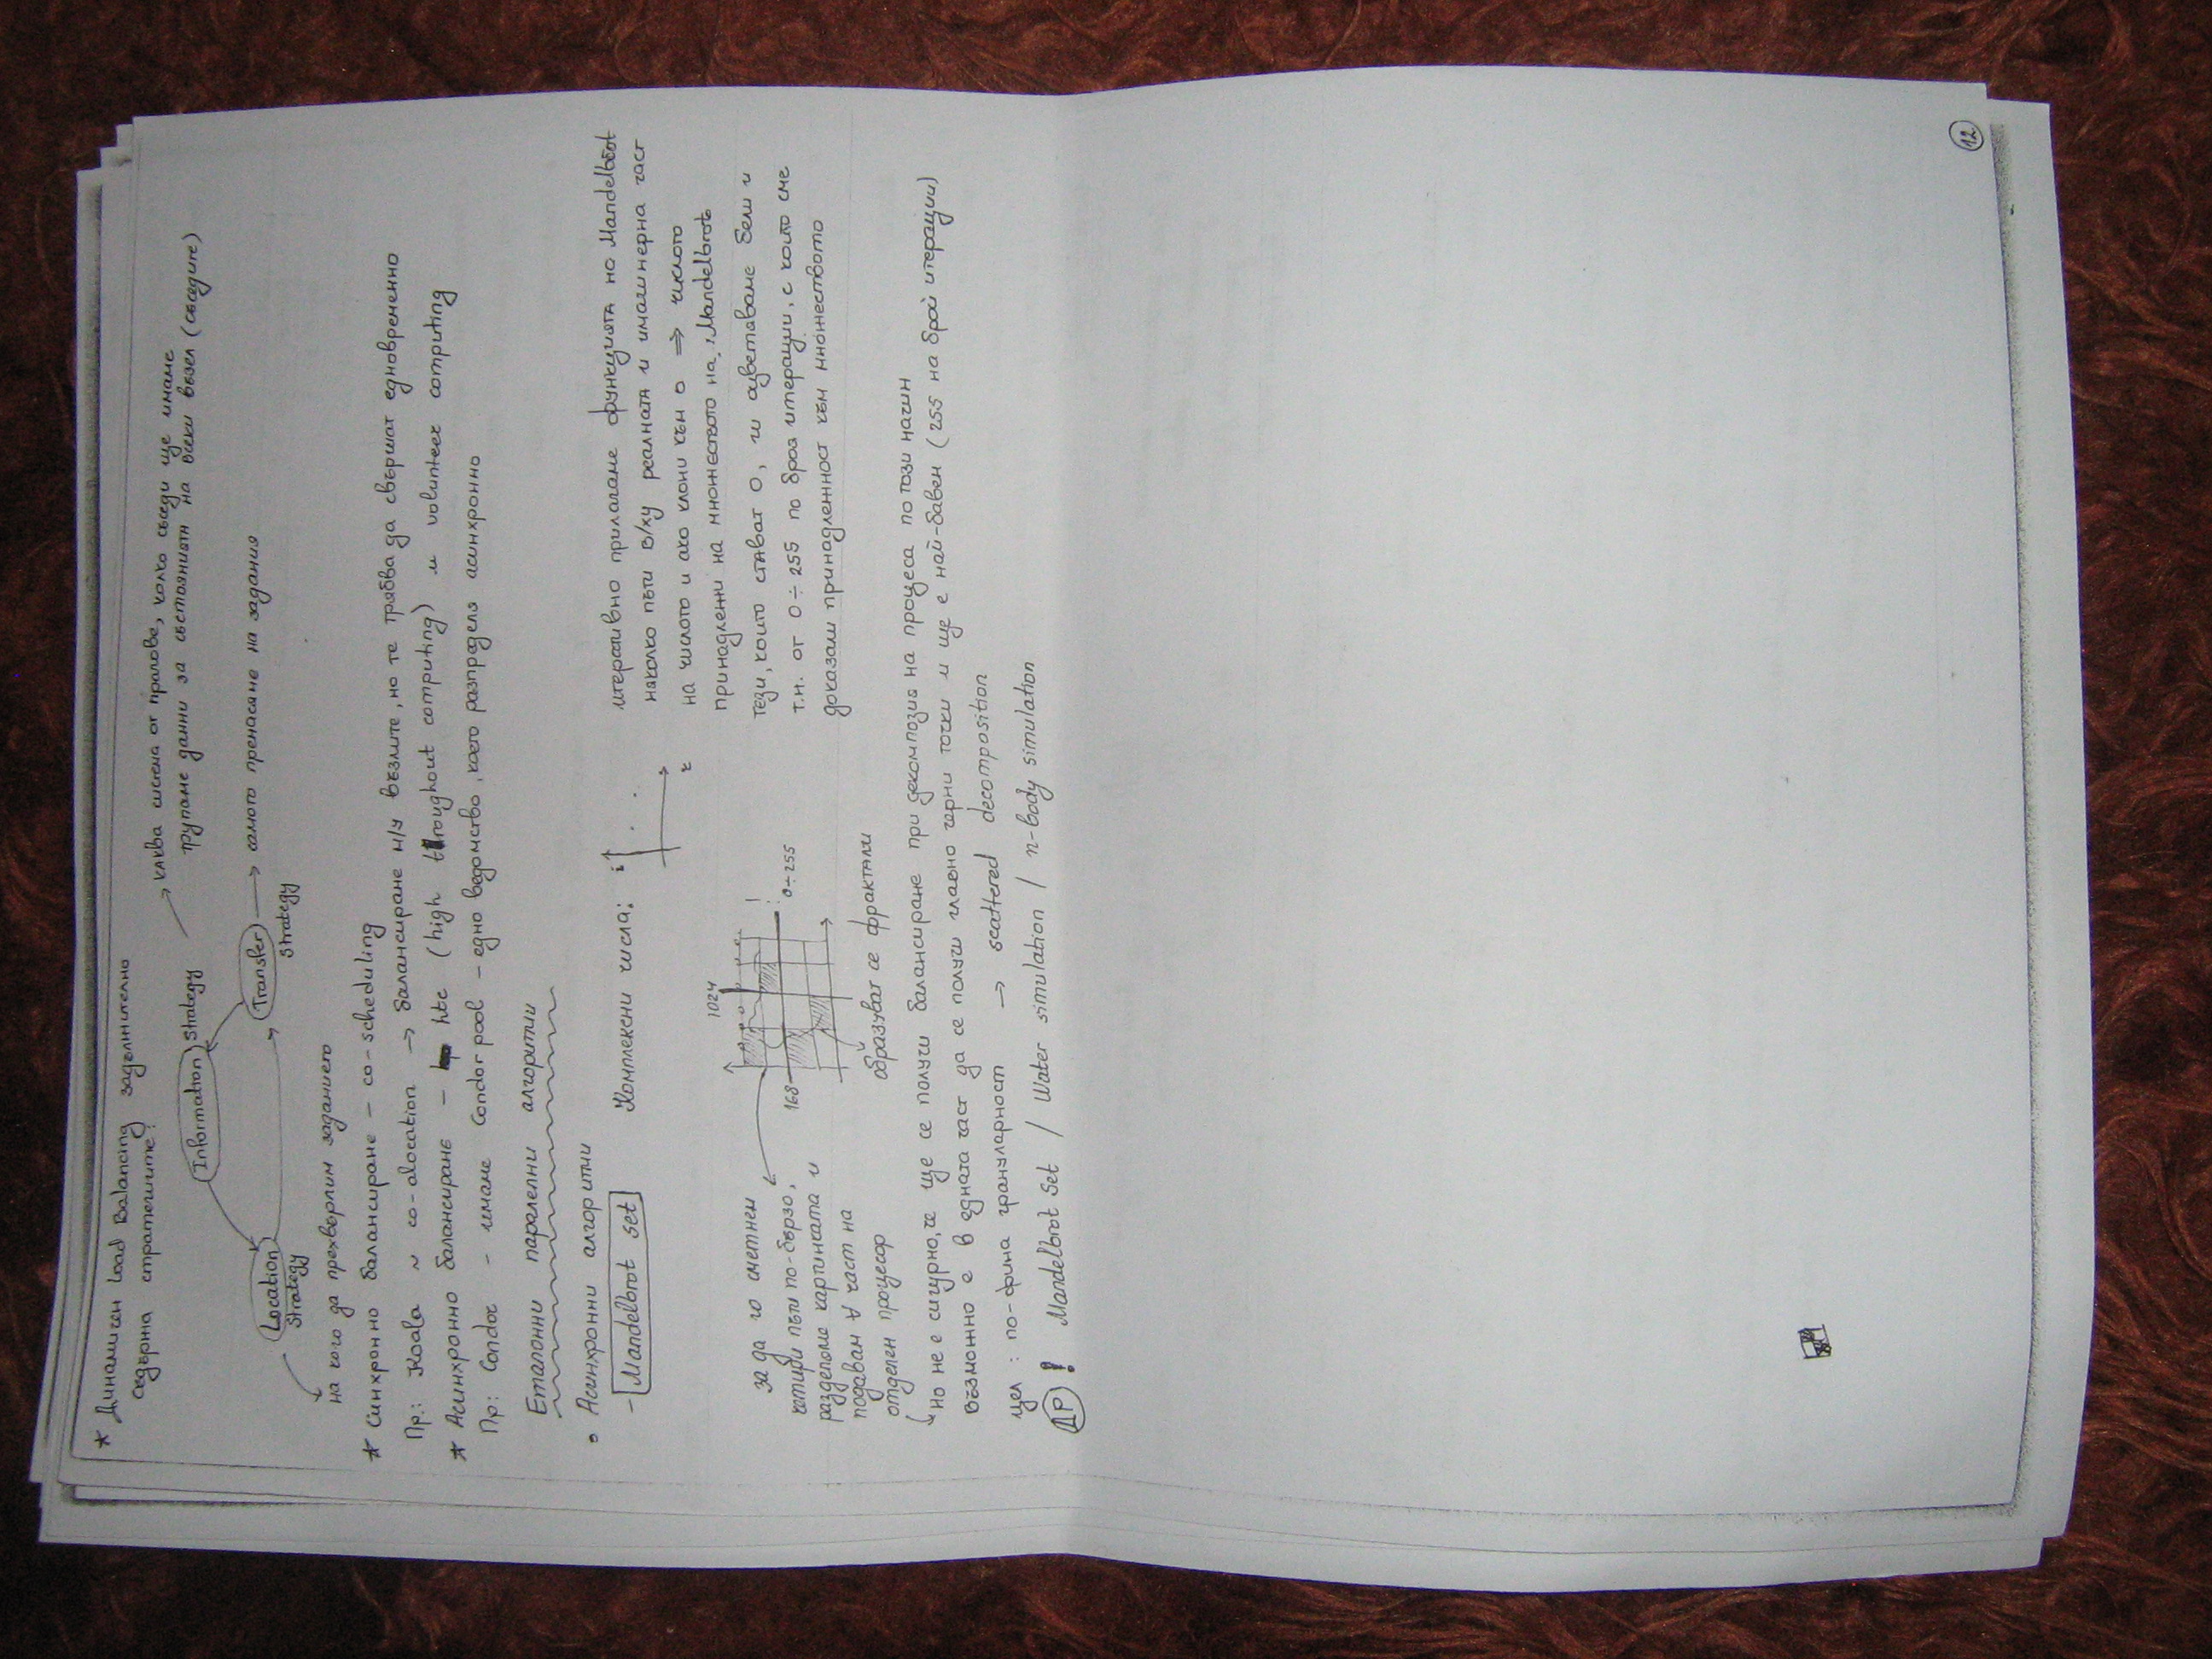 * Динамичен Load Balancing задължително
съдържа стратегиите:
Information Strategy → каква система от правове, колко съседи ще имаме
трупаме данни за състоянията на всеки възел (съседите)
Transfer Strategy → самото пренасяне на задания
Location Strategy
на кого да прехвърлим заданието
* Синхронно балансиране - co-scheduling
Пр.: Koala ~ co-alocation → балансиране м/у възлите, но те трябва да свършат едновременно
* Асинхронно балансиране - htc (high throughout computing) и volunteer computing
Пр.: Condor - имаме Condor pool - едно ведомство, което разпределя асинхронно
Еталонни паралелни алгоритми
• Асинхронни алгоритми
- Mandelbrot set
Комплексни числа: i r
итеративно прилагане функцията но Mandelbrot
няколко пъти в/ху реалната и имагинерна част
на числото и ако клони към 0 ⇒ числото
принадлежи на множеството на Mandelbrot
тези, които стават 0, ги оцветяваме бели и
т.н. от 0÷255 по броя итерации, с които сме
доказали принадлежност към множеството
1024
168
0÷255
образуват се фрактали
за да го сметнем
четири пъти по-бързо,
разделяме картината и
подавам ∀ част на
отделен процесор
но не е сигурно, че ще се получи балансиране при декомпозия на процеса по този начин
възможно е в едната част да се получи главно черни точки и ще е най-бавен (255 на брой итерации)
цел: по-фина грануларност → scattered decomposition
ДР ! Mandelbrot Set / Water simulation / n-body simulation
12